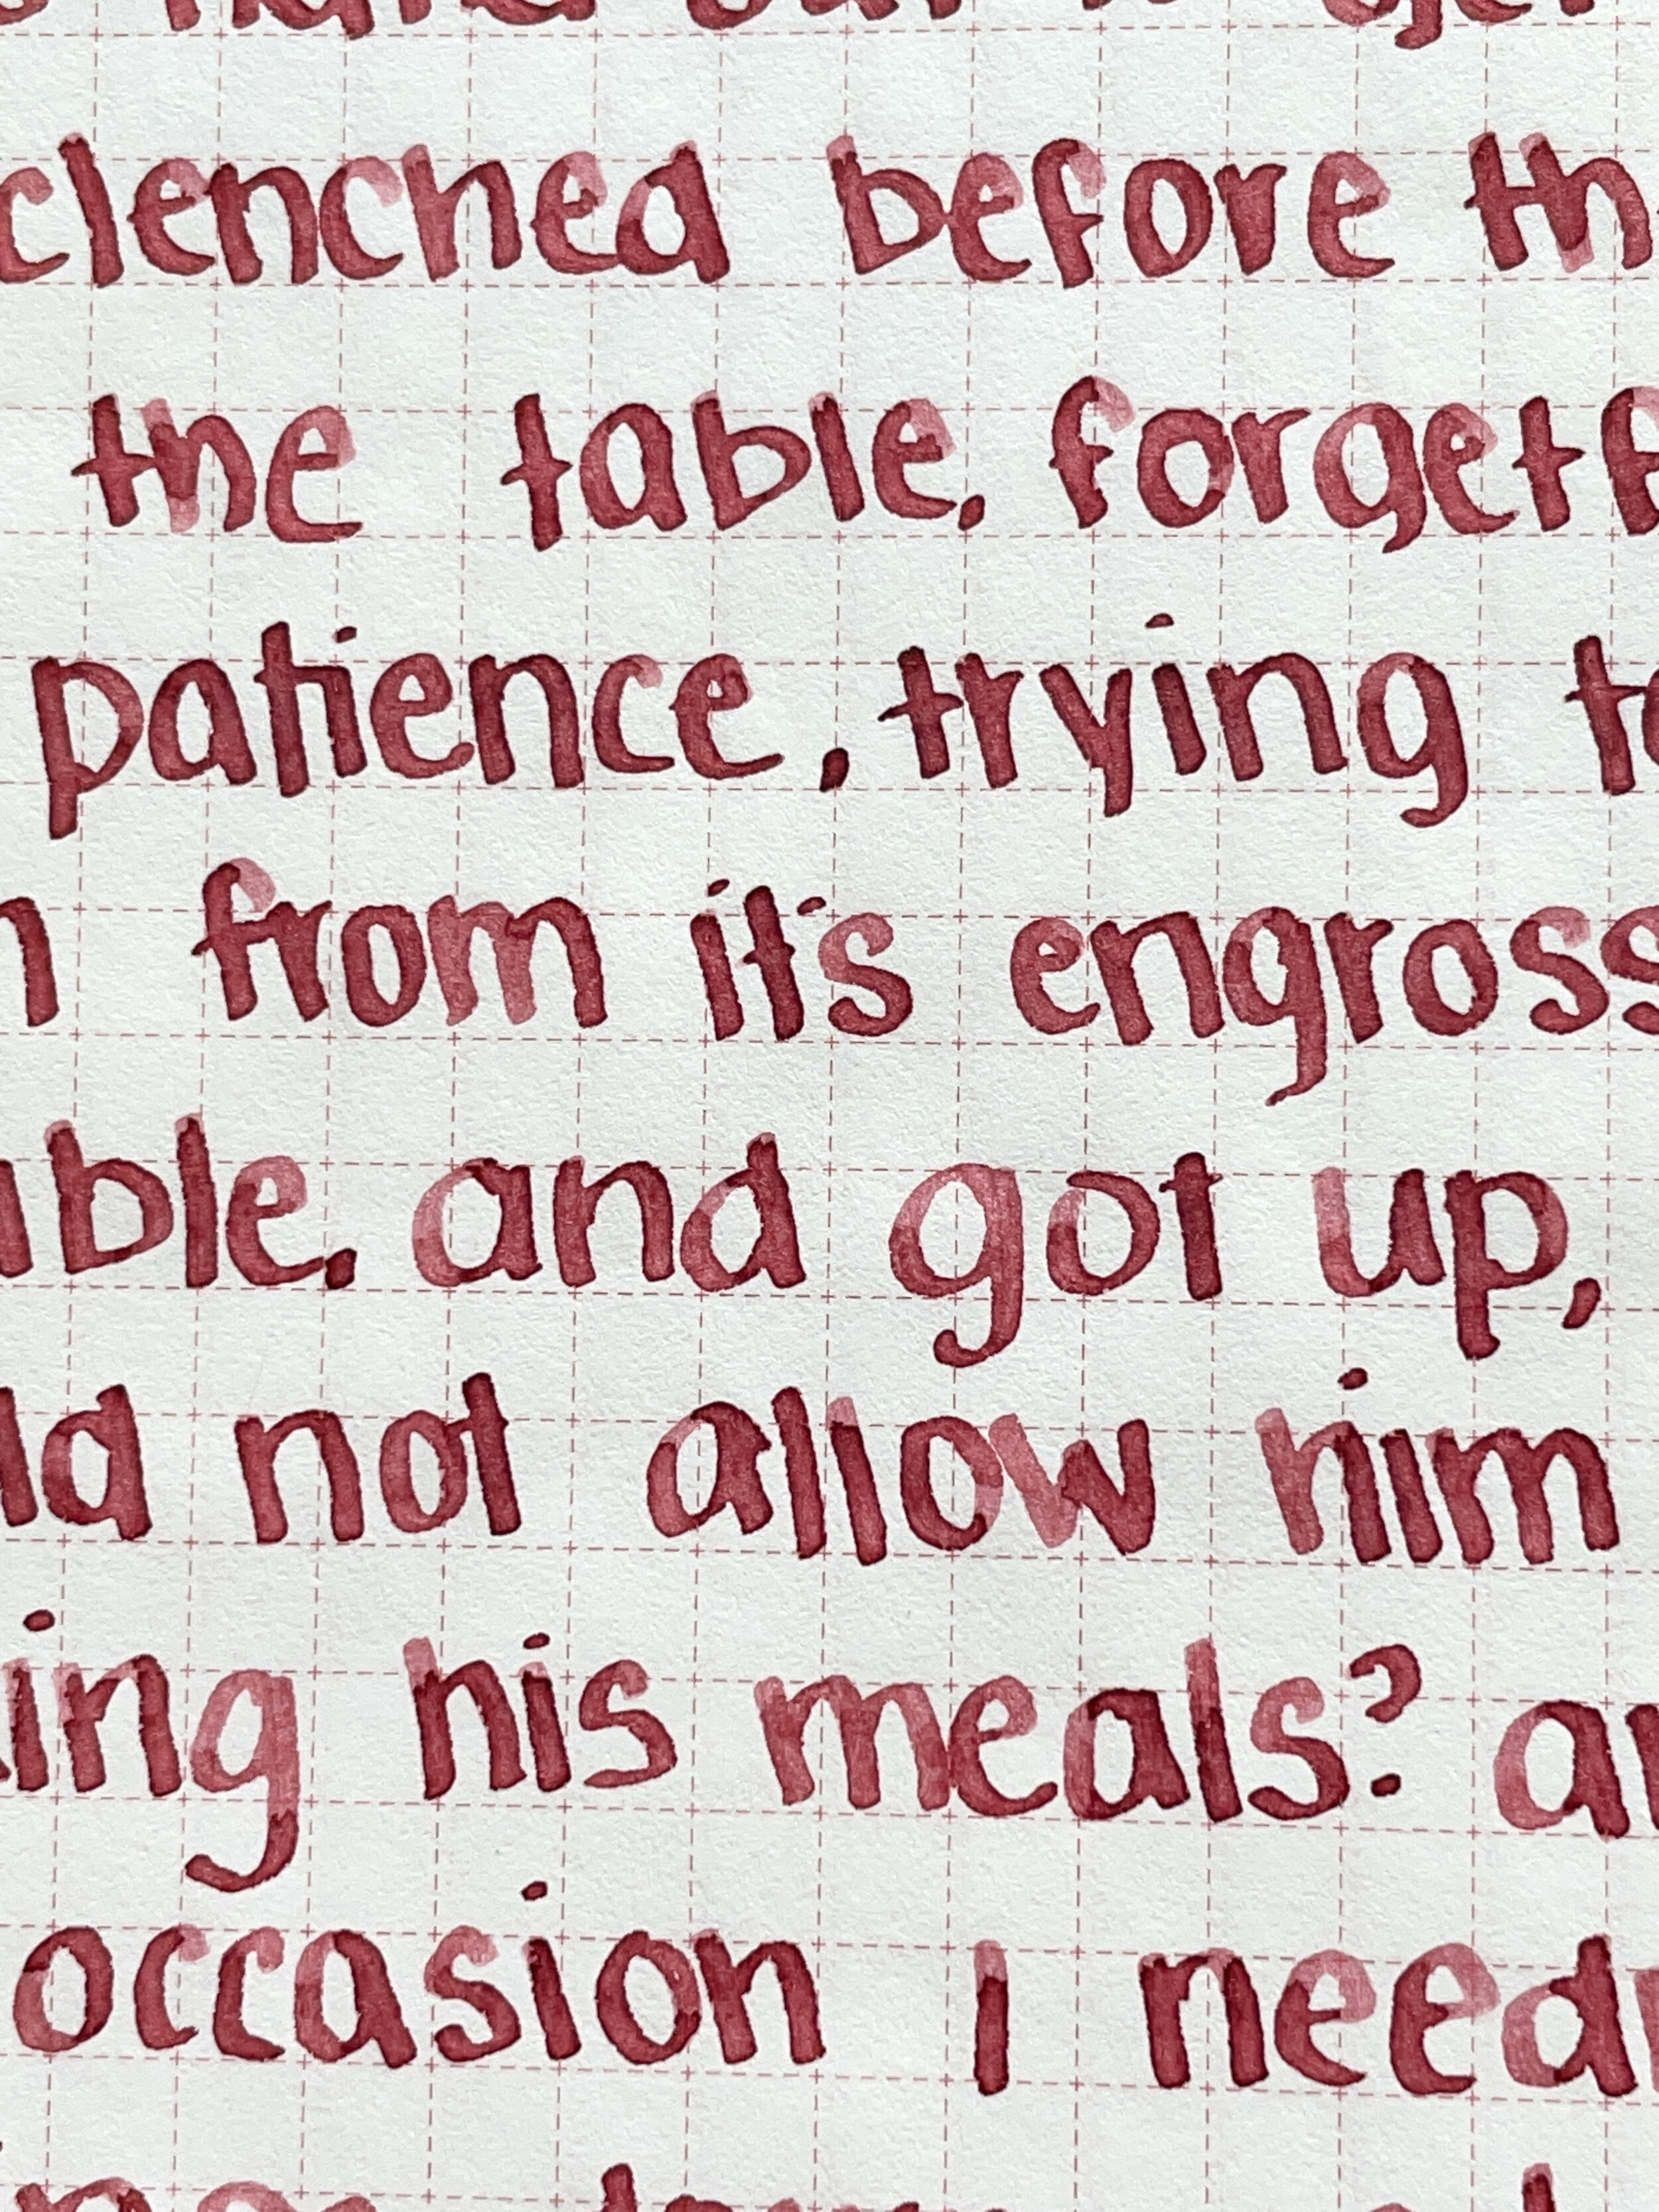 clenched before th
the table, forgetf
patience, trying to
n from it's engross
able, and got up,
ld not allow him
ing his meals? an
occasion I need